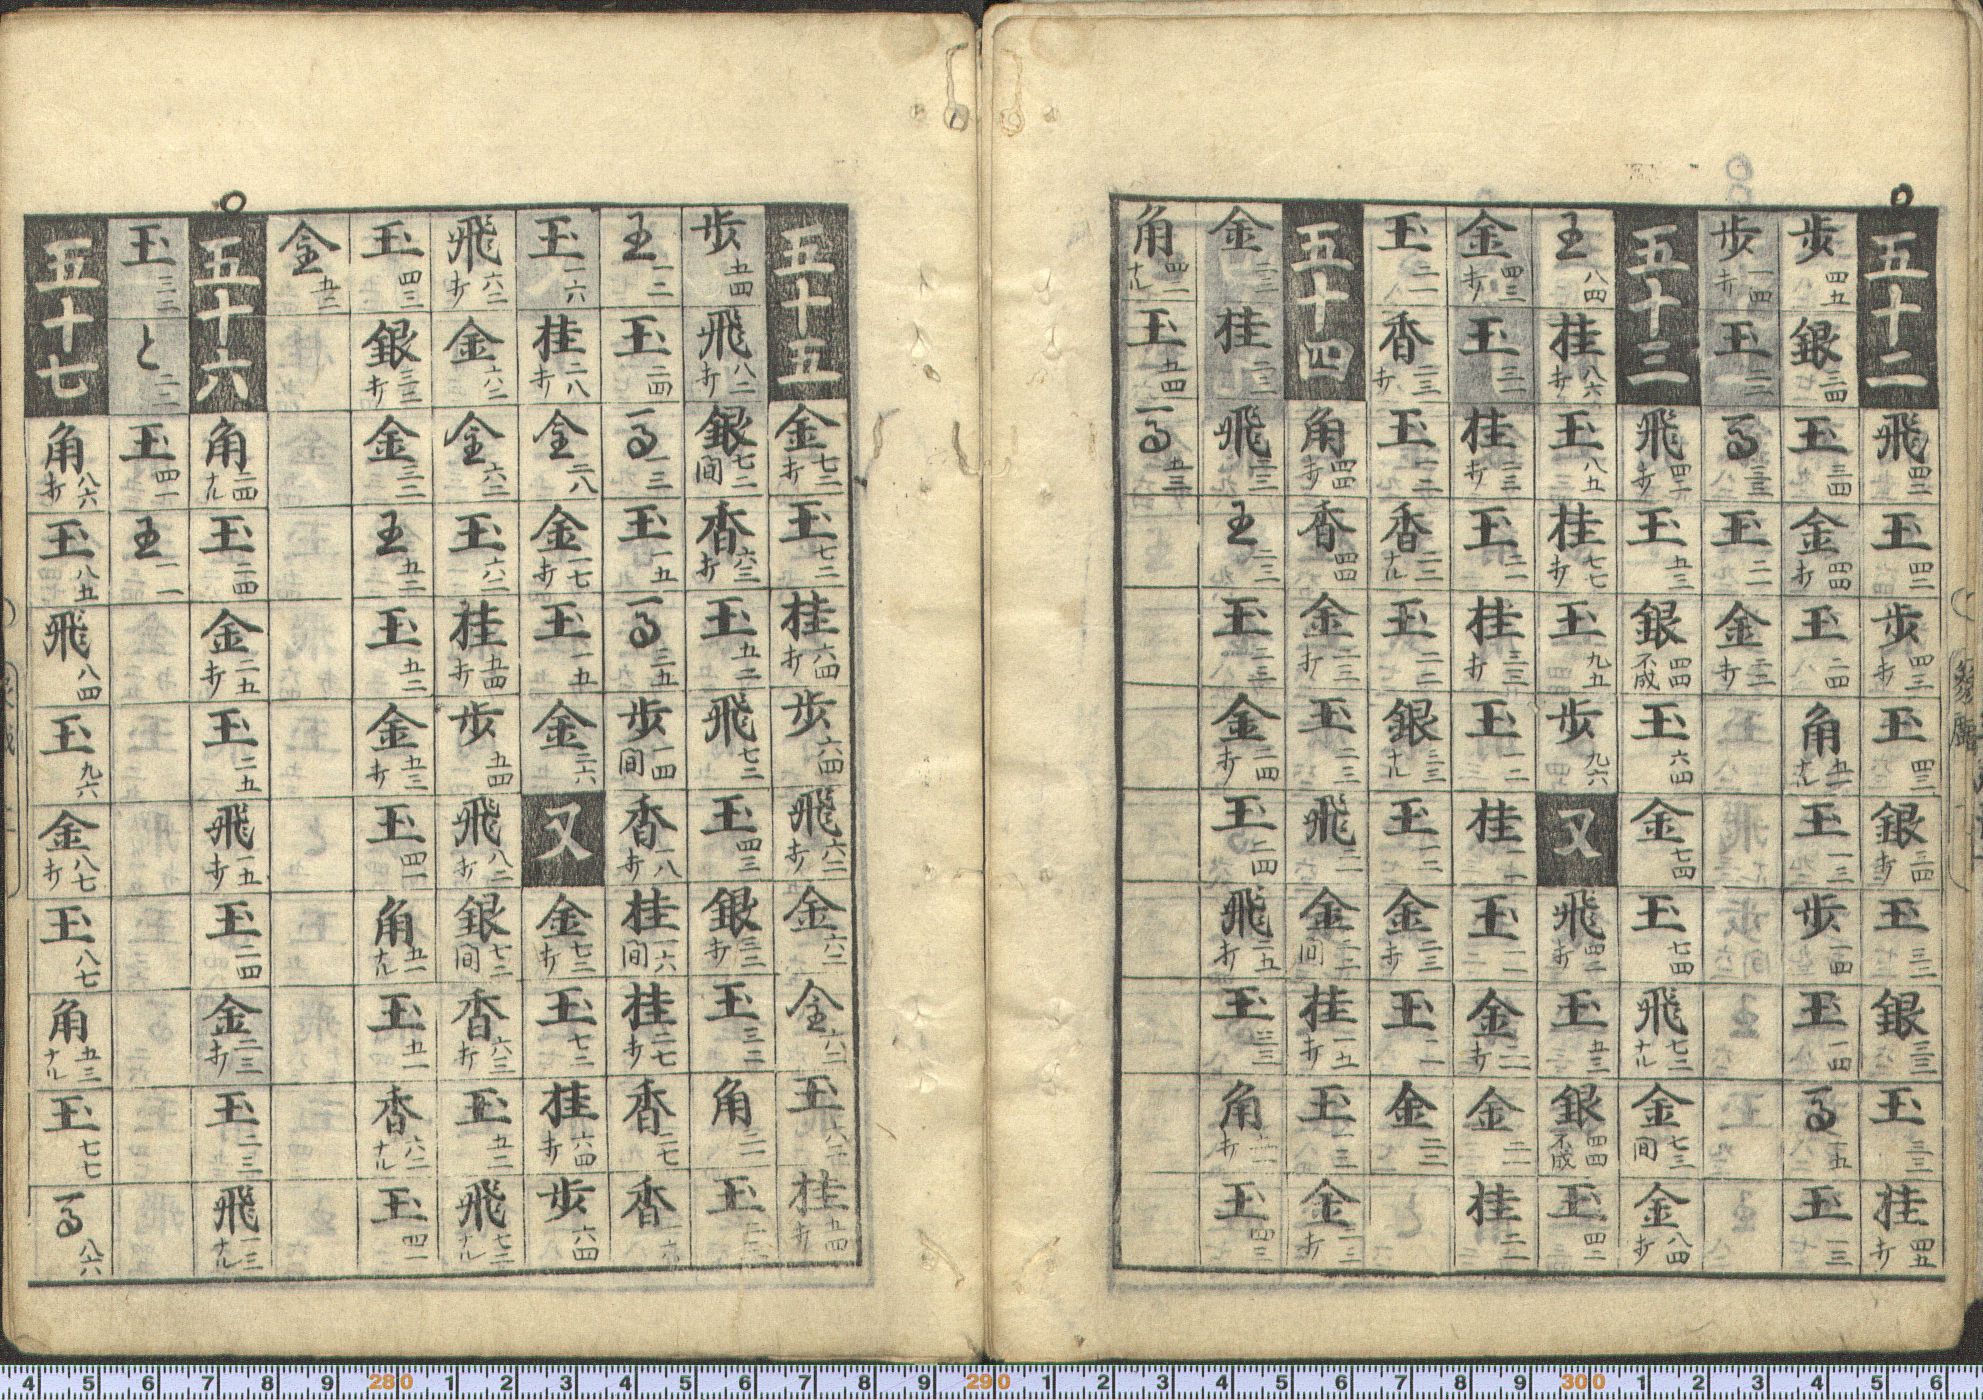 五十二 飛四二 玉四二 歩四三打 玉四二 銀三四打 玉三二 銀三三 玉三三 桂四五打
歩四五 銀三四 玉三四 金四四打 玉二四 角ナル 玉一三 歩一四 玉一四 馬一五 玉一三
歩一四打 玉二二 馬三三 玉二一 金三二打
五十三 飛四六打 玉五三 銀四四不成 玉六四 金七四 玉七四 飛七三ナル 金七三間 金八四打
王八四 桂八六打 玉八五 桂七七打 玉九五 歩九六 又 飛四二打 玉五三 銀四四不成 玉四二
金四三打 玉三一 桂三三打 玉二一 桂三三打 玉一二 桂 玉一一 金二一打 金二一 桂二一
玉二一 香二三打 玉一二 香二二ナル 玉二二 銀三三ナル 玉一二 金二三打 玉二一 金三二
五十四 角四四打 香四四 金二三打 玉二三 飛二一 金二二間 桂一五打 玉一三 金二三打
金二三 桂二三 飛三三 王二三 玉三三 金二四打 玉二四 飛二五打 玉三三 角打 玉四三
角四二ナル 玉五四 馬五三
五十五 金七二打 玉七二 桂六四打 歩六四 飛六二打 金六二 全六二 玉六二 桂五四打
歩五四 飛八二打 銀七二間 香六三打 玉五二 飛七二 玉四三 銀三三打 玉三二 角二一 玉
王一二 玉二四 馬一三 玉一五 馬三五 歩一四間 香一八打 桂一六間 桂二七打 香二七 香一六
玉一六 桂二八打 全二八 金一七打 玉一五 金二六 又 金七二打 玉七二 桂六四打 歩六四
飛六二打 金六二 全六二 玉六二 桂五四打 歩五四 飛八二打 銀七二間 香六三打 玉五二 飛七二ナル
玉四三 銀三三打 金三二 王五二 玉五二 金五三打 玉四一 角五一ナル 玉五一 香六二ナル 玉四一
全五二
五十六 角二四ナル 玉二四 金二五打 玉二五 飛一五打 玉二四 金二三打 玉二三 飛一三ナル
玉三二 と二二 玉四一 王一一
五十七 角八六打 玉八五 飛八四 玉九六 金八七打 玉八七 角五三ナル 玉七七 馬八六